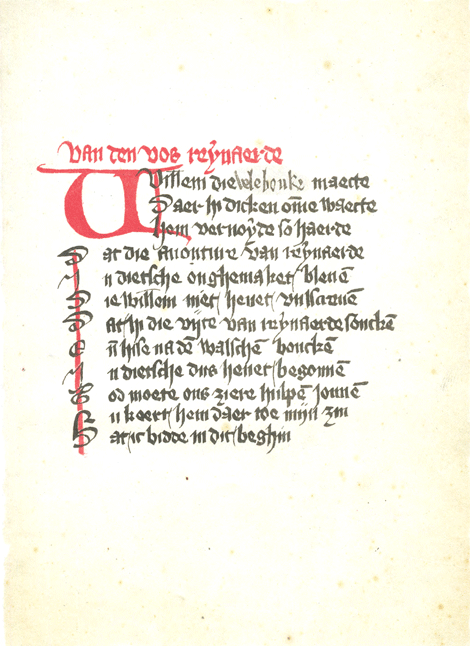 van den vos reynaerde
Willem die vele bouke maecte
Daer hi dicken om̄e waecte
hem vernoyde so haerde
Dat die auonture van reynaerde
In dietsche onghemaket bleuē
Die willem niet heuet vulscreuē
Dat hi die vijte van reynaerde souckē
Eñ hise na dē walschē bouckē
In dietsche dus heuet begonnē
God moete ons ziere hulpē jonnē
Nu keert hem daer toe mijn zin
Dat ic bidde in dit beghin